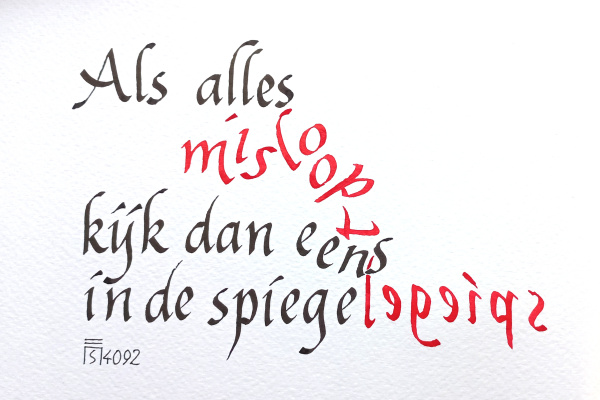 Als alles
misloopt
kijk dan eens
in de spiegelegeips
4092